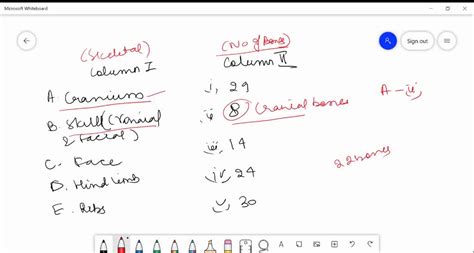 Microsoft Whiteboard
Sign out
(Skeletal) (No of Bones)
Column I Column II
A. Craniums i, 29
B. Skill (Cranial ii, 8 Cranial bones A - ii,
& facial)
C. Face iii, 14
22 bones
B. Hind limb iv, 24
E. Ribs v, 30